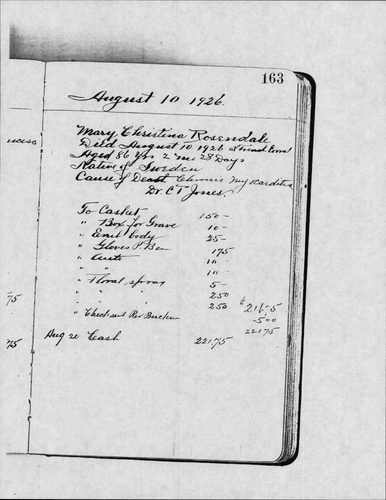 163
August 10 1926.
Mary Christina Rosendale
Died August 10 1926 at
Aged 86 Yrs 2 mo 28 Days
Native of Sweden
Cause of Death Chronic Myocarditis
Dr. C T Jones.
To Casket 150 -
" Box for Grave 10 -
" Emb body 25 -
" Gloves P. Bea 1 75
" Auto 10 -
" " 10 -
" Floral spray 5 -
" " " 2 50
" " " 2 50 $ 216 75
" Check Rev 5 00
221 75
Aug 20 Cash 221 75
75
75